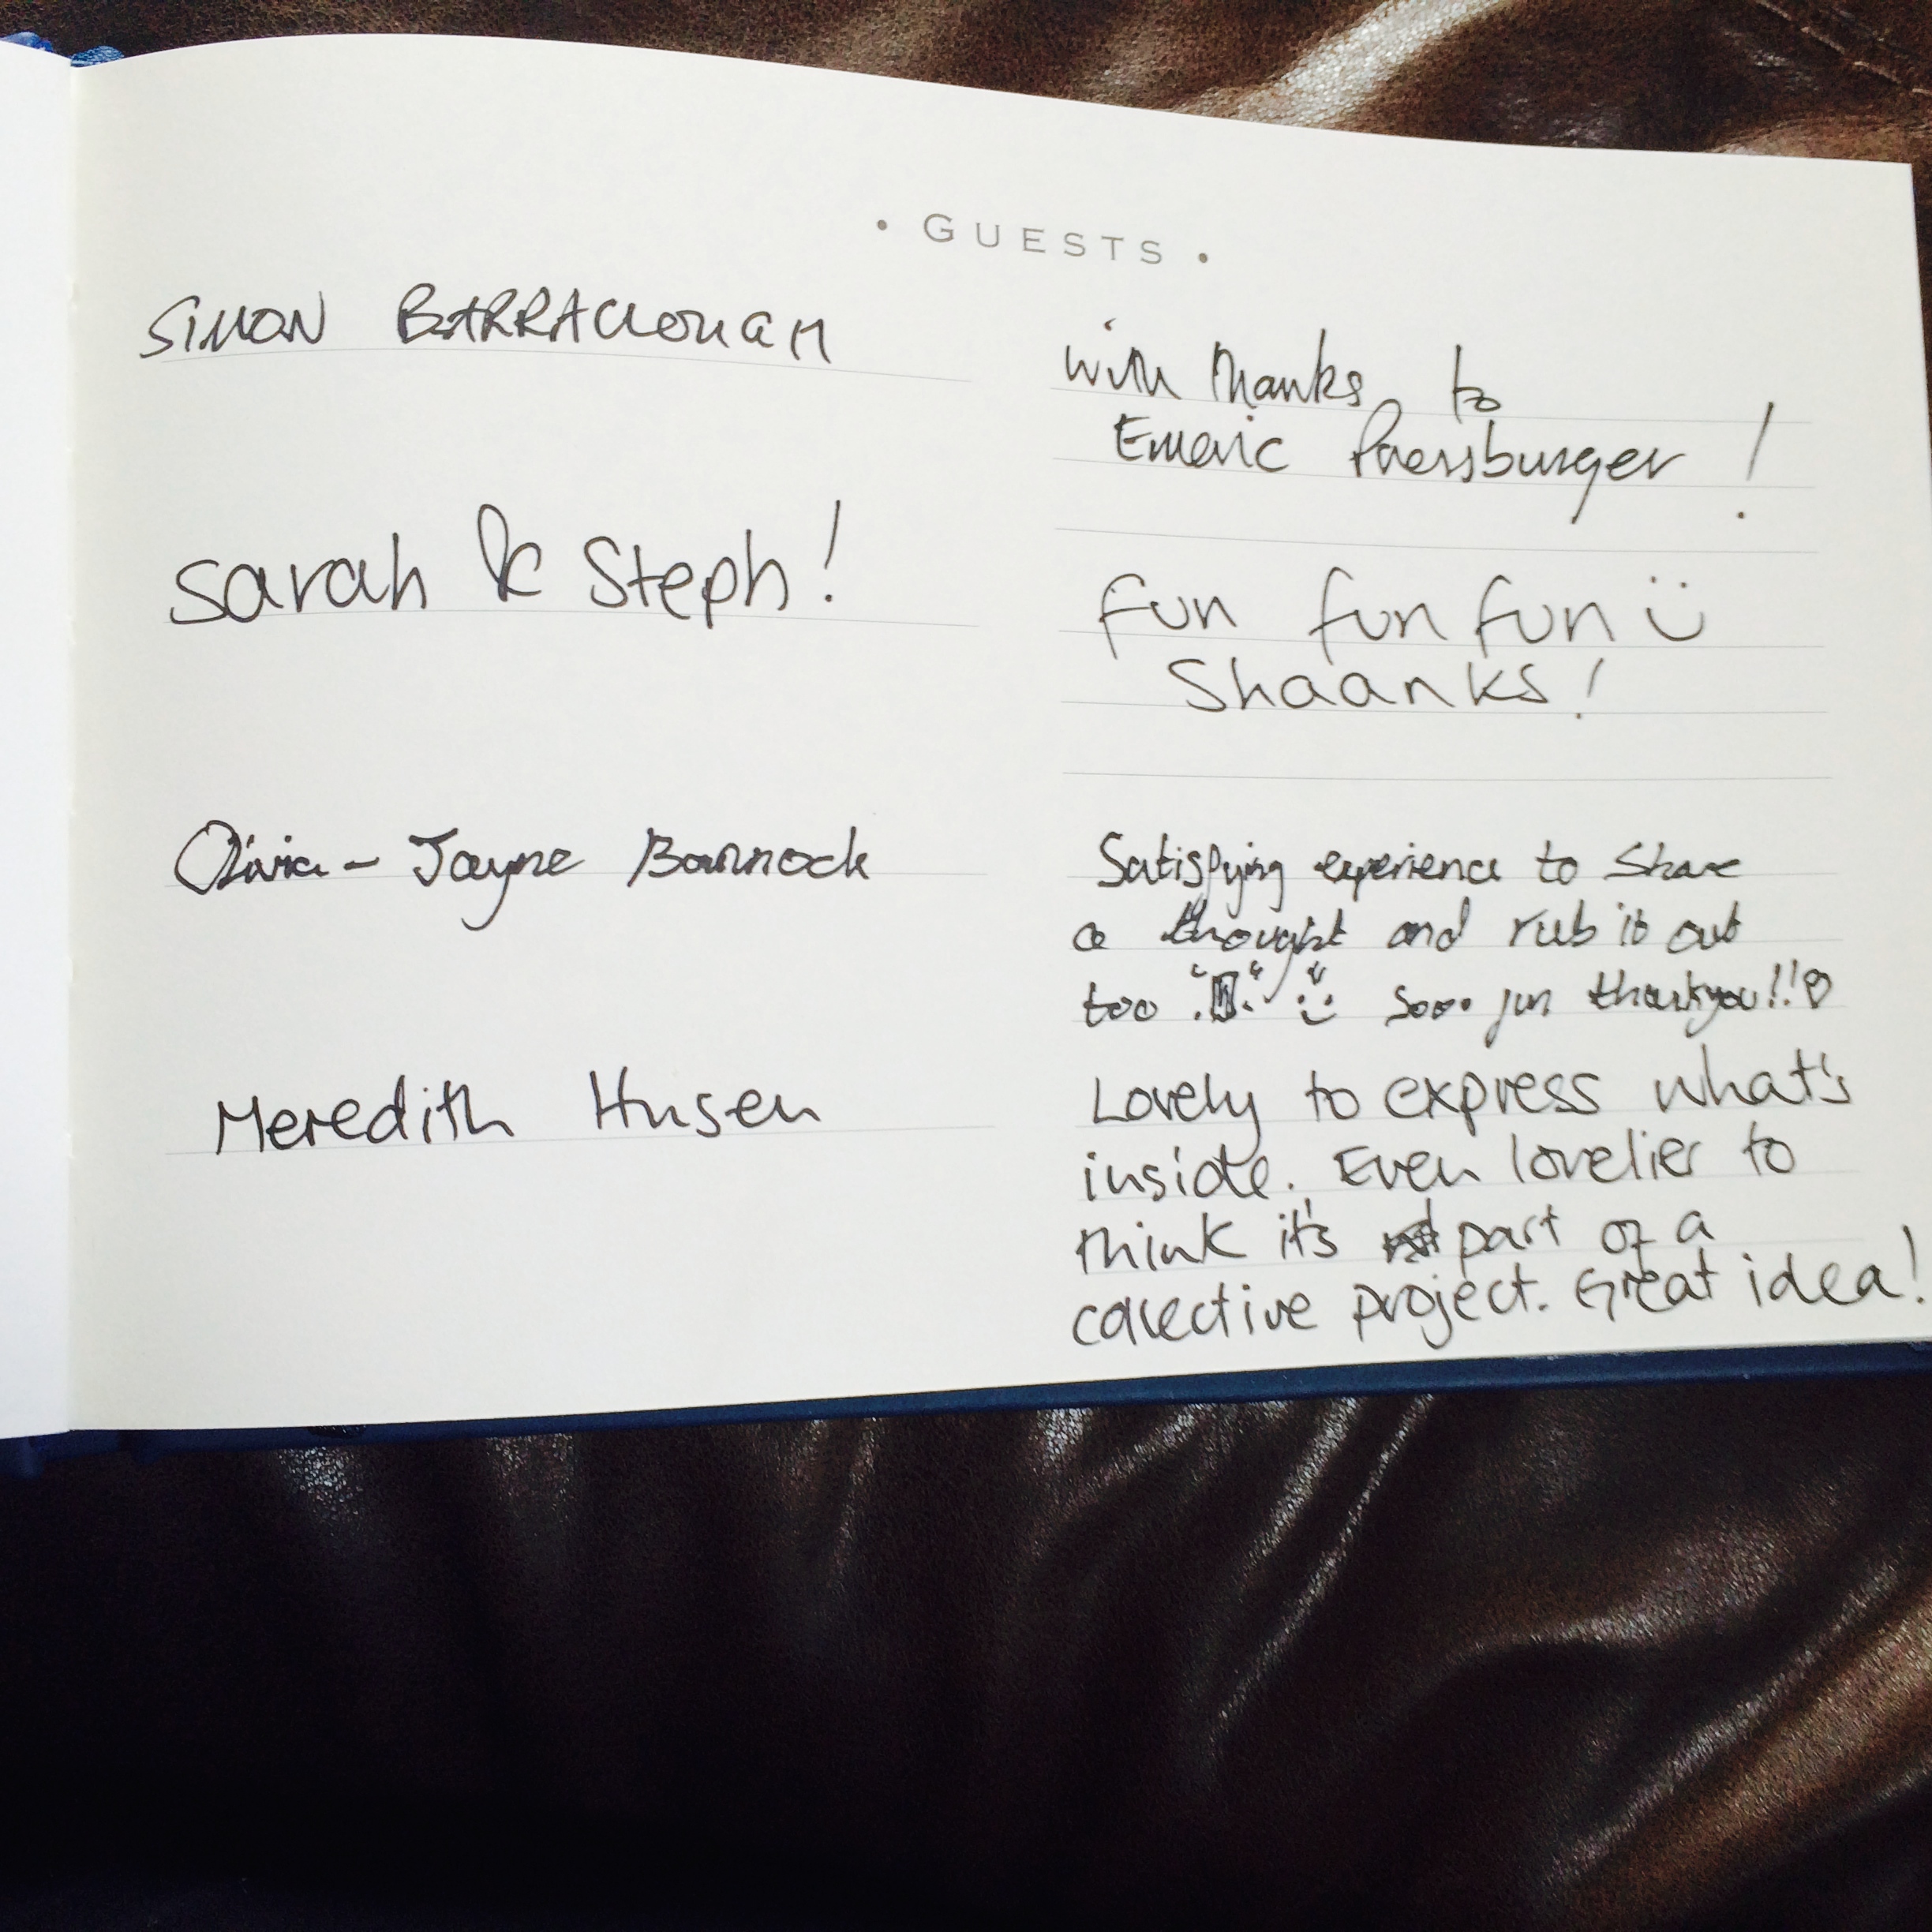 • GUESTS •
SIMON BARRACLOUGH
with thanks to
Emeric Pressburger!
Sarah & Steph!
Fun fun fun
Shaanks!
Olivia-Jayne Bannock
Satisfying experience to share
a thought and rub it out
too Sooo fun thankyou!!
Meredith Husen
Lovely to express what's
inside. Even lovelier to
think it's part of a
collective project. Great idea!